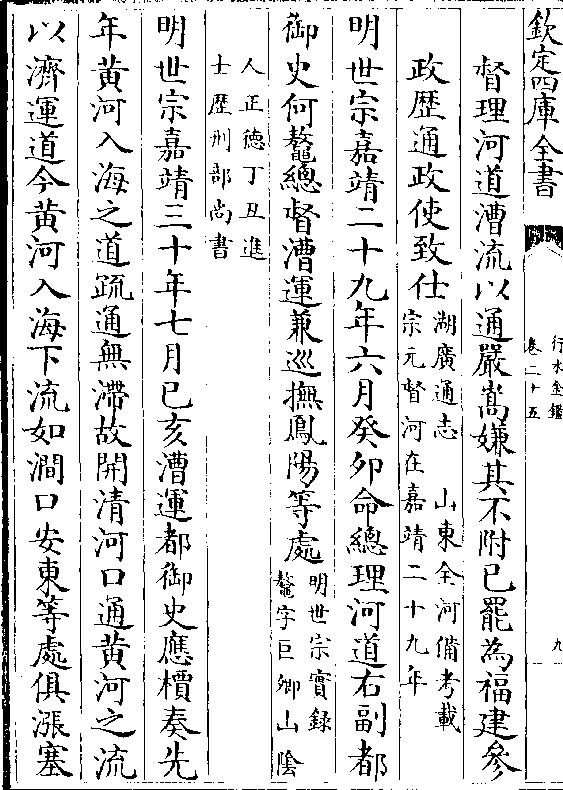 欽定四庫全書
行水金鑑
卷二十五
九
督理河道漕流以通嚴嵩嫌其不附已罷為福建參
政歷通政使致仕湖廣通志 山東全河備考載
宗元督河在嘉靖二十九年
明世宗嘉靖二十九年六月癸夘命總理河道右副都
御史何鼇總督漕運兼巡撫鳳陽等處明世宗實錄
鼇字巨卿山隂
人正德丁丑進
士歷刑部尚書
明世宗嘉靖三十年七月已亥漕運都御史應檟奏先
年黄河入海之道疏通無滯故開清河口通黄河之流
以濟運道今黄河入海下流如澗口安東等處俱漲塞